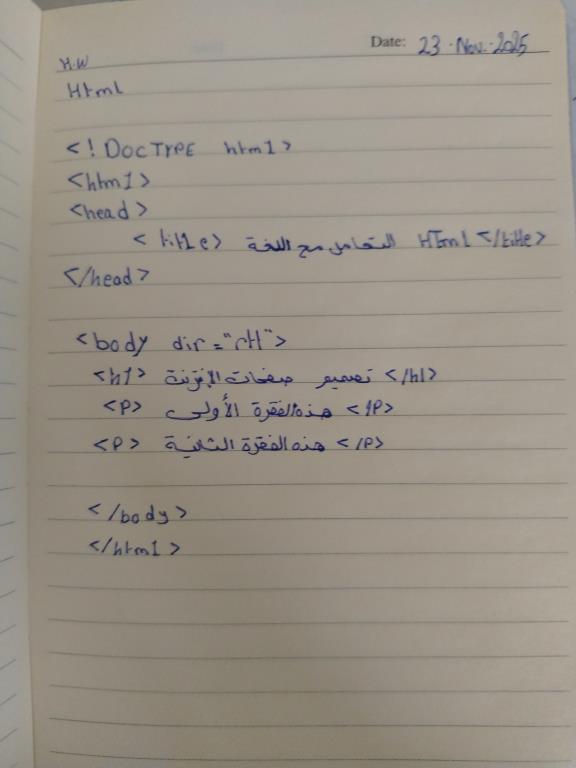 Date: 23. Nov. 2025
H.W
Html
<! DocTYPE html>
<html>
<head>
<title> التعامل مع اللغة HTml </title>
</head>
<body dir="rtl">
<h1> تصميم صفحات الإنترنت </h1>
<P> هذه الفقرة الأولى </P>
<P> هذه الفقرة الثانية </P>
</body>
</html>